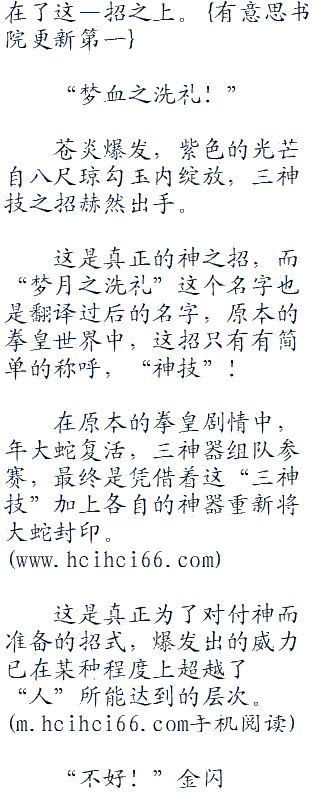 在了这一招之上。{有意思书
院更新第一}
“梦血之洗礼！”
苍炎爆发，紫色的光芒
自八尺琼勾玉内绽放，三神
技之招赫然出手。
这是真正的神之招，而
“梦月之洗礼”这个名字也
是翻译过后的名字，原本的
拳皇世界中，这招只有有简
单的称呼，“神技”！
在原本的拳皇剧情中，
年大蛇复活，三神器组队参
赛，最终是凭借着这“三神
技”加上各自的神器重新将
大蛇封印。
(www.hcihci66.com)
这是真正为了对付神而
准备的招式，爆发出的威力
已在某种程度上超越了
“人”所能达到的层次。
(m.hcihci66.com手机阅读)
“不好！”金闪